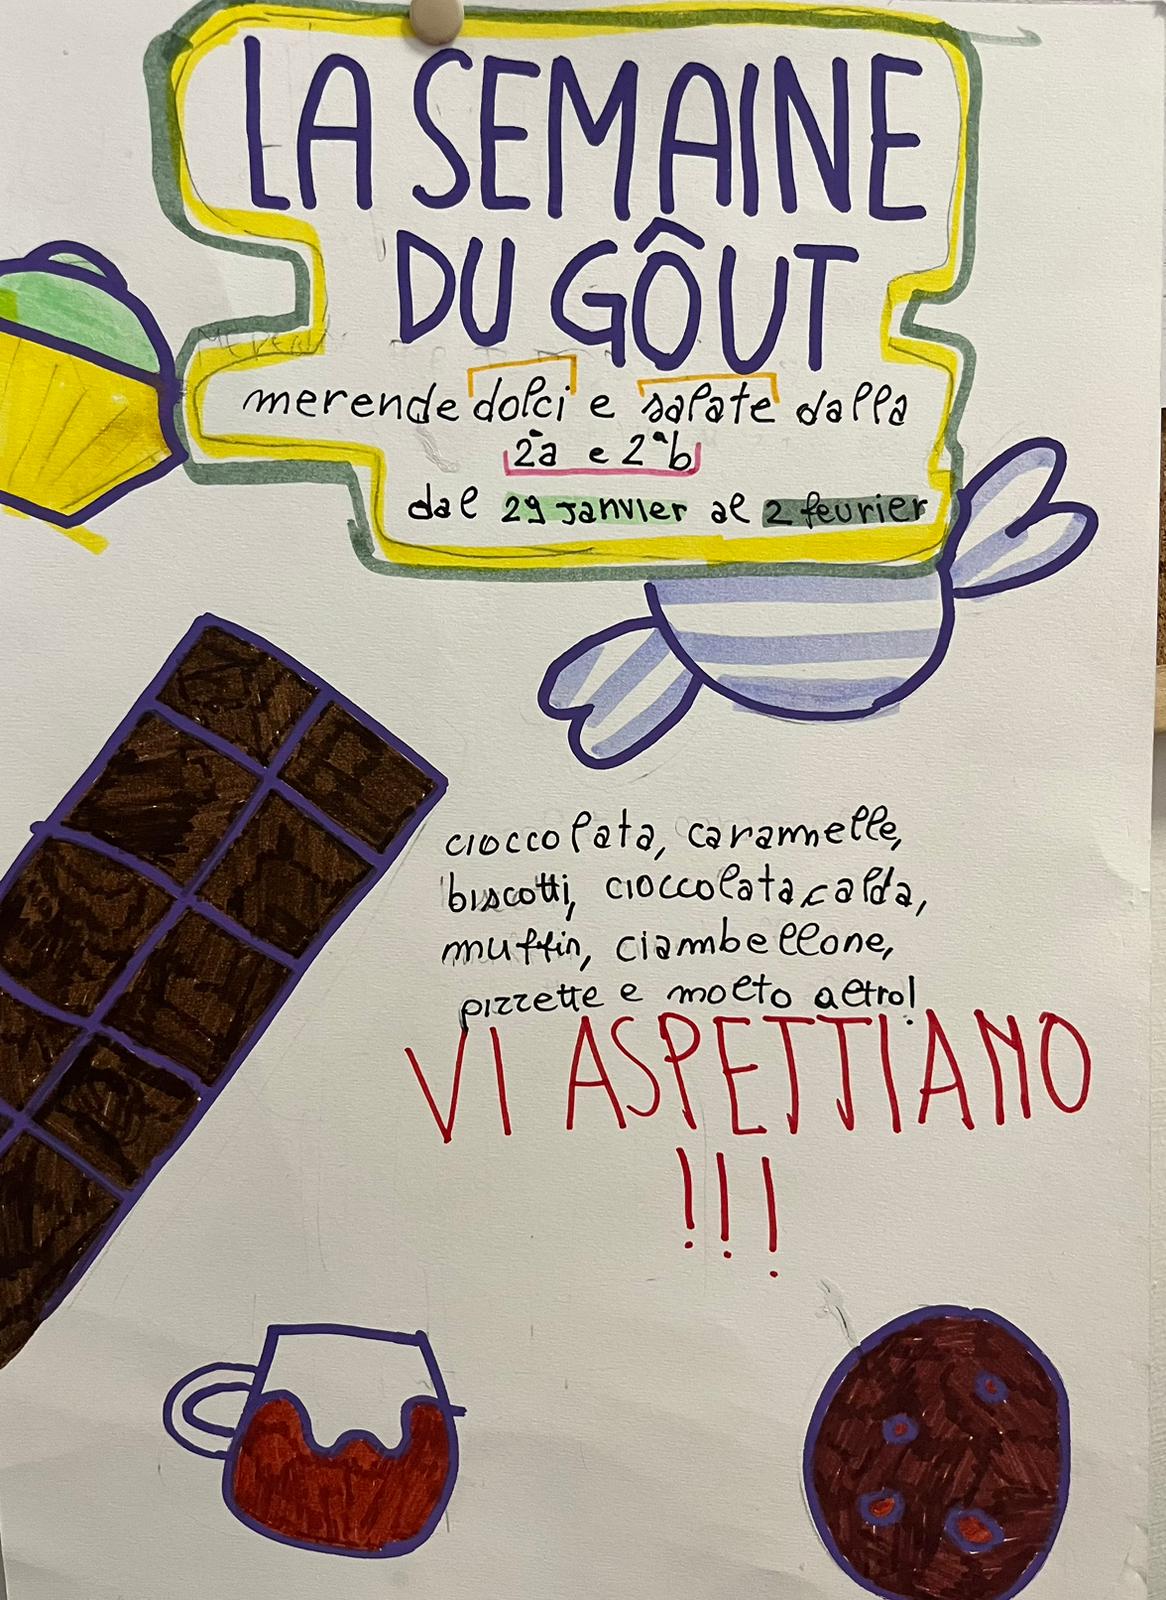 LA SEMAINE
DU GÔUT
merende dolci e salate dalla
2ªa e 2ªb
dal 29 janvier al 2 feurier
cioccolata, caramelle,
biscotti, cioccolata calda,
muffin, ciambellone,
pizzette e molto altro!
VI ASPETTIAMO
!!!